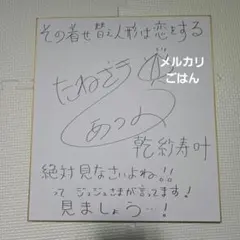 その着せ替え人形は恋をする
たねざき
あつみ
メルカリ
ごはん
乾紗寿叶
絶対見なさいよね!!
って ジュジュさまが言ってます!
見ましょう…!